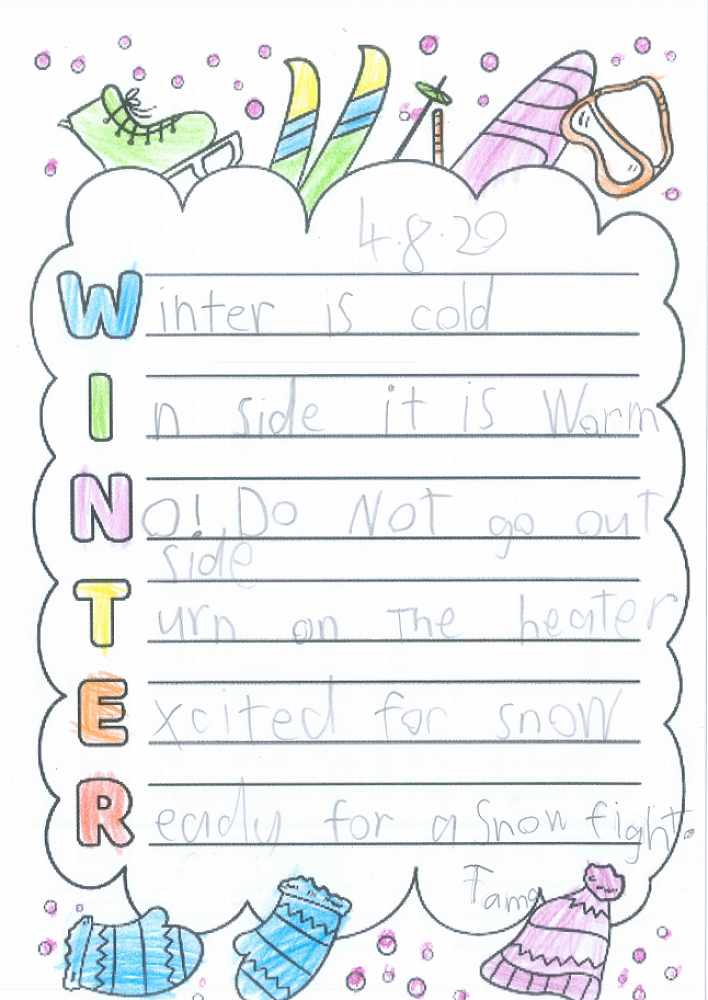 4.8.20
Winter is cold
In side it is Warm
NO! Do Not go out
side
Turn on The heater
Excited for snow
Ready for a Snow fight.